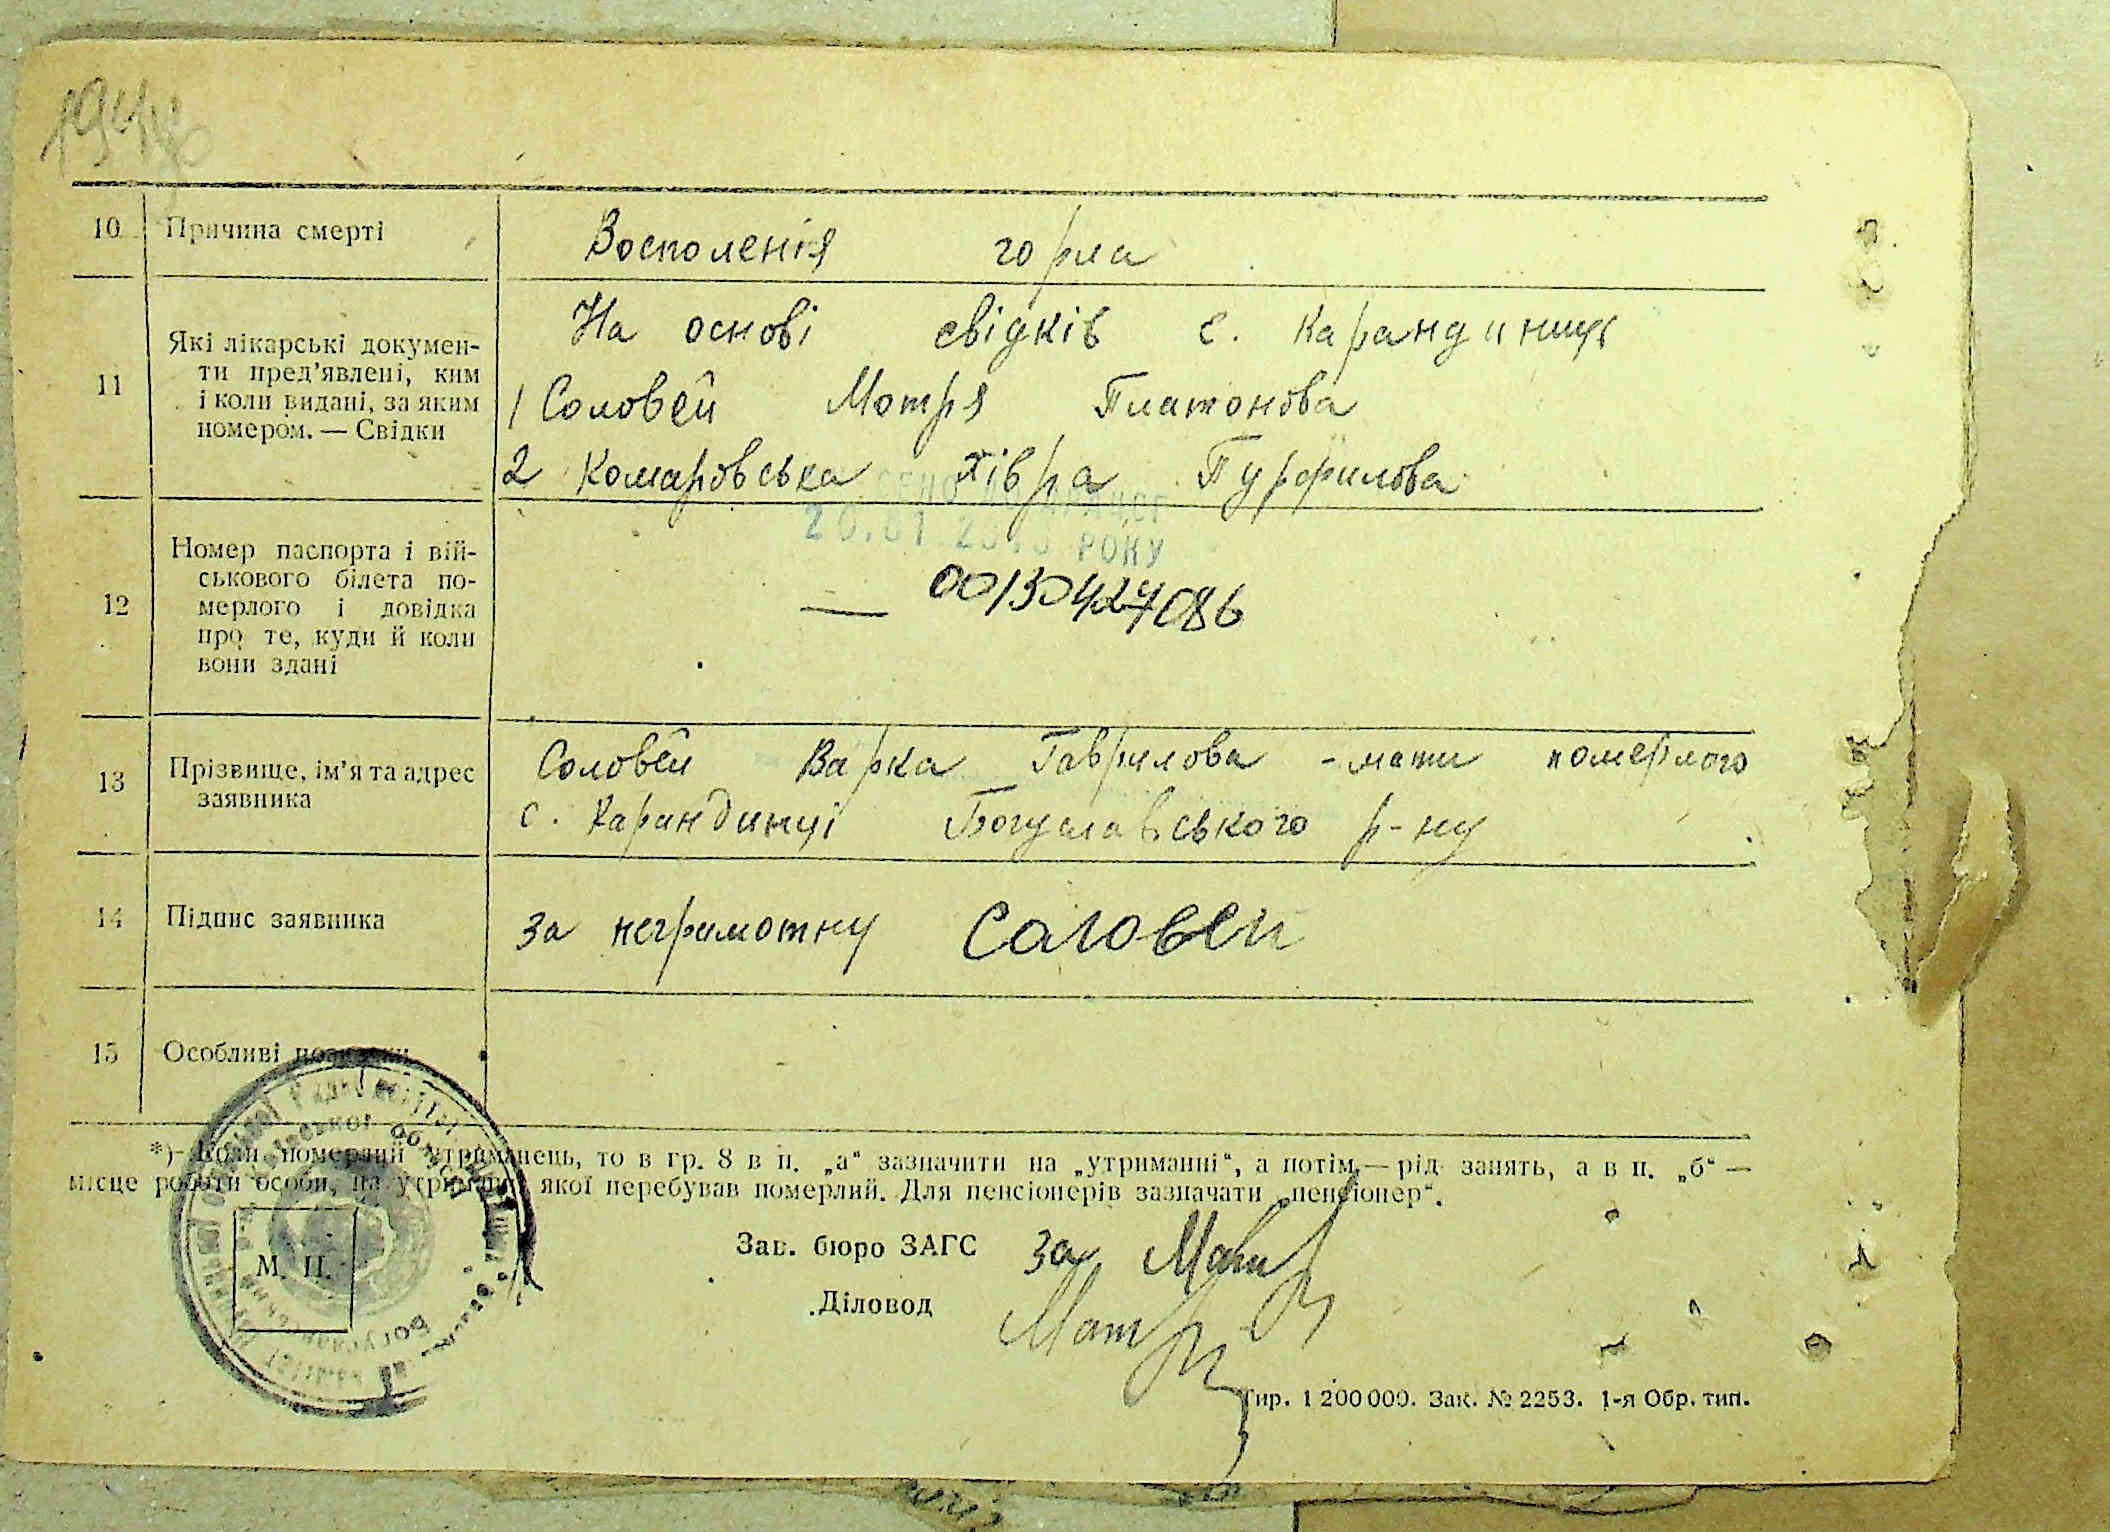 10 Причина смерті Восполенія горла
11 Які лікарські докумен-
ти пред'явлені, ким
і коли видані, за яким
номером. — Свідки
На основі свідків с. Карандинць
1 Соловей Мотря Платонова
2 Комаровська Хівра Пурфилова
20.01 РОКУ
12 Номер паспорта і вій-
ськового білета по-
мерлого і довідка
про те, куди й коли
вони здані
— 00130424086
13 Прізвище, ім'я та адрес
заявника
Соловей Варка Гаврилова - мати померлого
с. Карандинці Богуславського р-ну
14 Підпис заявника за неграмотну Соловей
15 Особливі
*) Коли померлий утриманець, то в гр. 8 в п. „а“ зазначити на „утриманні“, а потім — рід занять, а в п. „б“ —
місце роботи особи, на утриманні якої перебував померлий. Для пенсіонерів зазначати „пенсіонер“.
М. П.
Зав. бюро ЗАГС за
Діловод
Тир. 1 200 000. Зак. № 2253. 1-я Обр. тип.